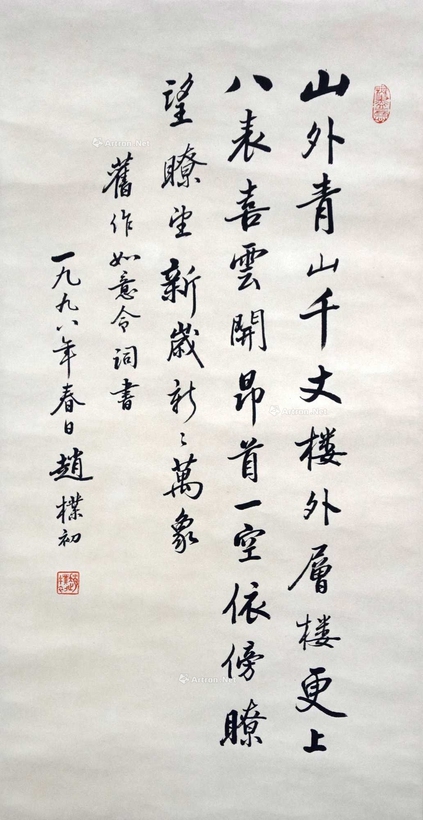 山外青山千丈楼外層楼更上
八表喜雲開昂首一空依傍瞭
望瞭望新歲新〻萬象
舊作如意令詞書
一九九八年春日趙樸初
Artron.Net
Artron.Net
Artron.Net